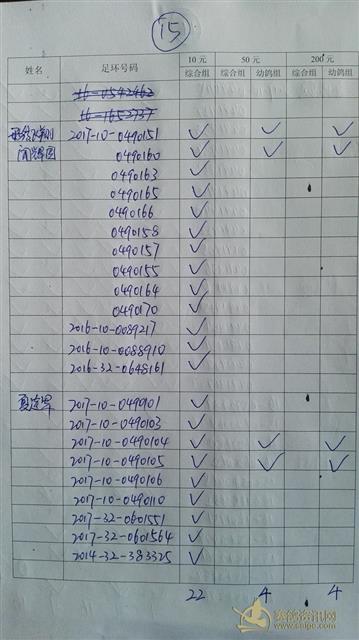 15
10 元 50 元 200 元
姓名 足环号码 综合组 综合组 幼鸽组 综合组 幼鸽组
16-0542462
16-1652737
2017-10-0490151 ✓ ✓ ✓
0490160 ✓ ✓ ✓
0490163 ✓
0490165 ✓
0490166 ✓
0490158 ✓
0490157 ✓
0490155 ✓
0490164 ✓
0490170 ✓
2016-10-0089217 ✓
2016-10-0088910 ✓
2016-32-0648161 ✓
2017-10-0490101 ✓
2017-10-0490103 ✓
2017-10-0490104 ✓ ✓ ✓
2017-10-0490105 ✓ ✓ ✓
2017-10-0490106 ✓
2017-10-0490110 ✓
2017-32-0601551 ✓
2017-32-0601564 ✓
2014-32-383325 ✓
22 4 4